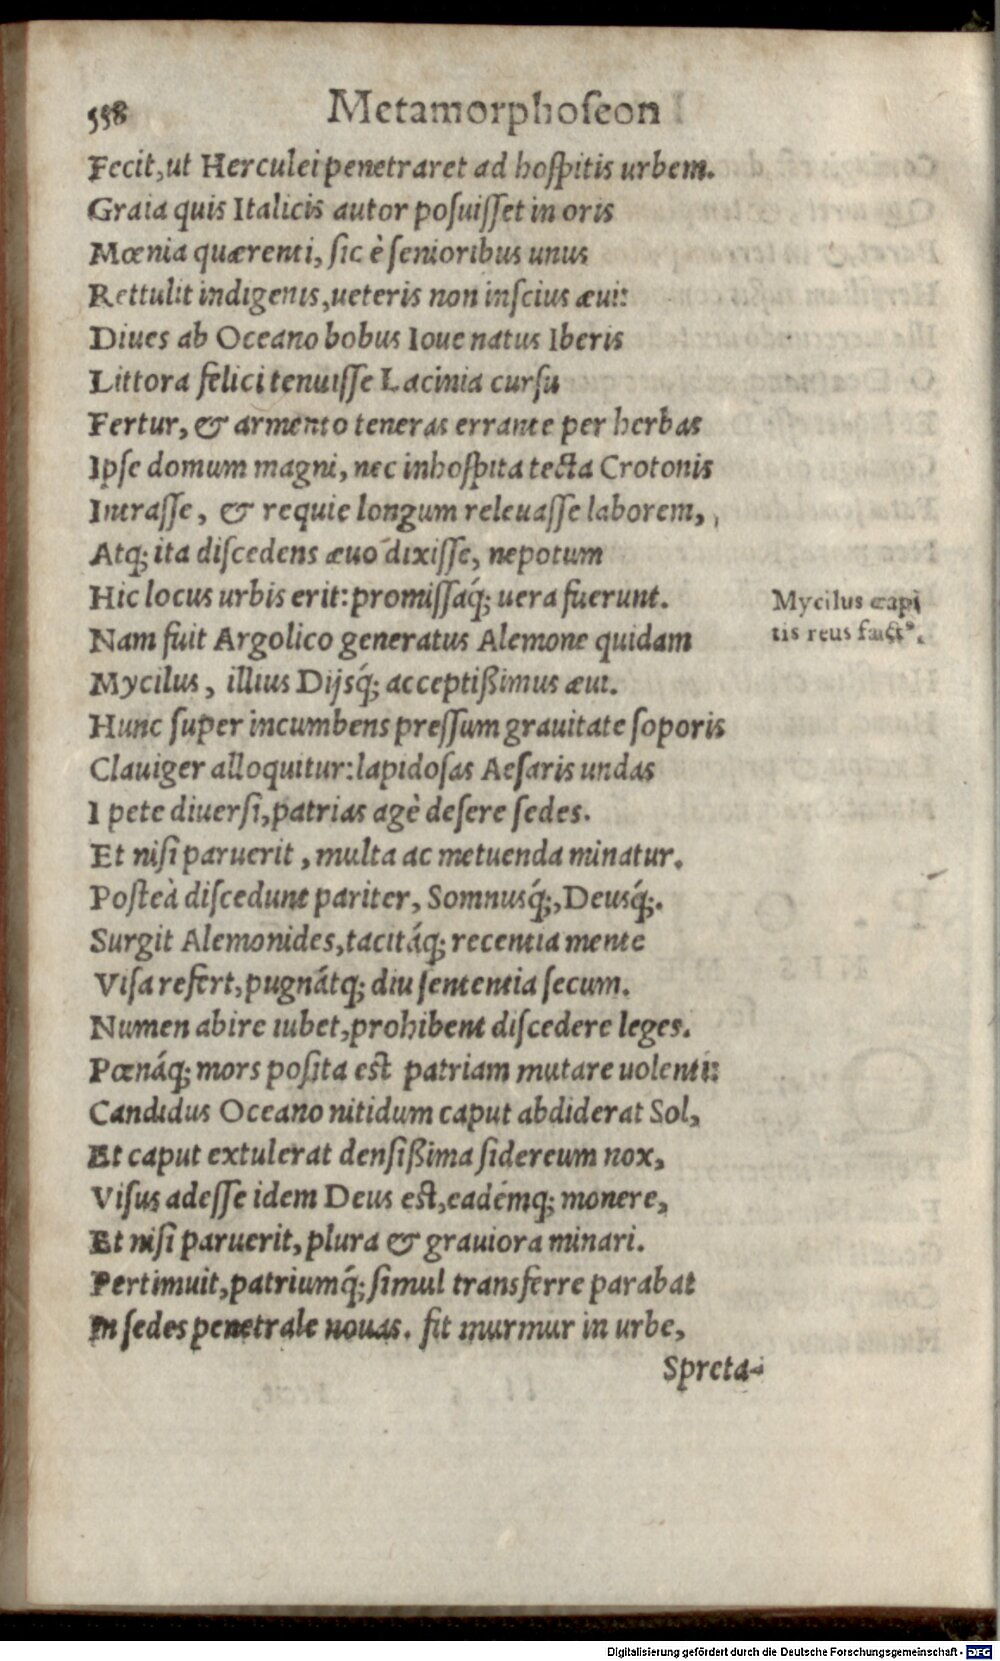 558
Metamorphoseon
Fecit, ut Herculei penetraret ad hoſpitis urbem.
Graia quis Italicis autor poſuiſſet in oris
Mœnia quærenti, ſic è ſenioribus unus
Rettulit indigenis, ueteris non inſcius æui:
Diues ab Oceano bobus Ioue natus Iberis
Littora felici tenuiſſe Lacinia curſu
Fertur, & armento teneras errante per herbas
Ipſe domum magni, nec inhoſpita tecta Crotonis
Intraſſe, & requie longum releuaſſe laborem,
Atq; ita diſcedens æuo dixiſſe, nepotum
Hic locus urbis erit: promiſſaq́; uera fuerunt.
Nam fuit Argolico generatus Alemone quidam
Mycilus, illius Dijsq́; acceptißimus æui.
Hunc ſuper incumbens preſſum grauitate ſoporis
Clauiger alloquitur: lapidoſas Aeſaris undas
I pete diuerſi, patrias agè deſere ſedes.
Et niſi paruerit, multa ac metuenda minatur.
Poſteà diſcedunt pariter, Somnusq́;, Deusq́;.
Surgit Alemonides, tacitáq; recentia mente
Viſa refert, pugnátq; diu ſententia ſecum.
Numen abire iubet, prohibent diſcedere leges.
Pœnáq; mors poſita est patriam mutare uolenti:
Candidus Oceano nitidum caput abdiderat Sol,
Et caput extulerat denſißima ſidereum nox,
Viſus adeſſe idem Deus est, eadémq; monere,
Et niſi paruerit, plura & grauiora minari.
Pertimuit, patriumq́; ſimul transferre parabat
In ſedes penetrale nouas. fit murmur in urbe,
Spreta-
Mycilus capi
tis reus fact⁹.
Digitalisierung gefördert durch die Deutsche Forschungsgemeinschaft - DFG